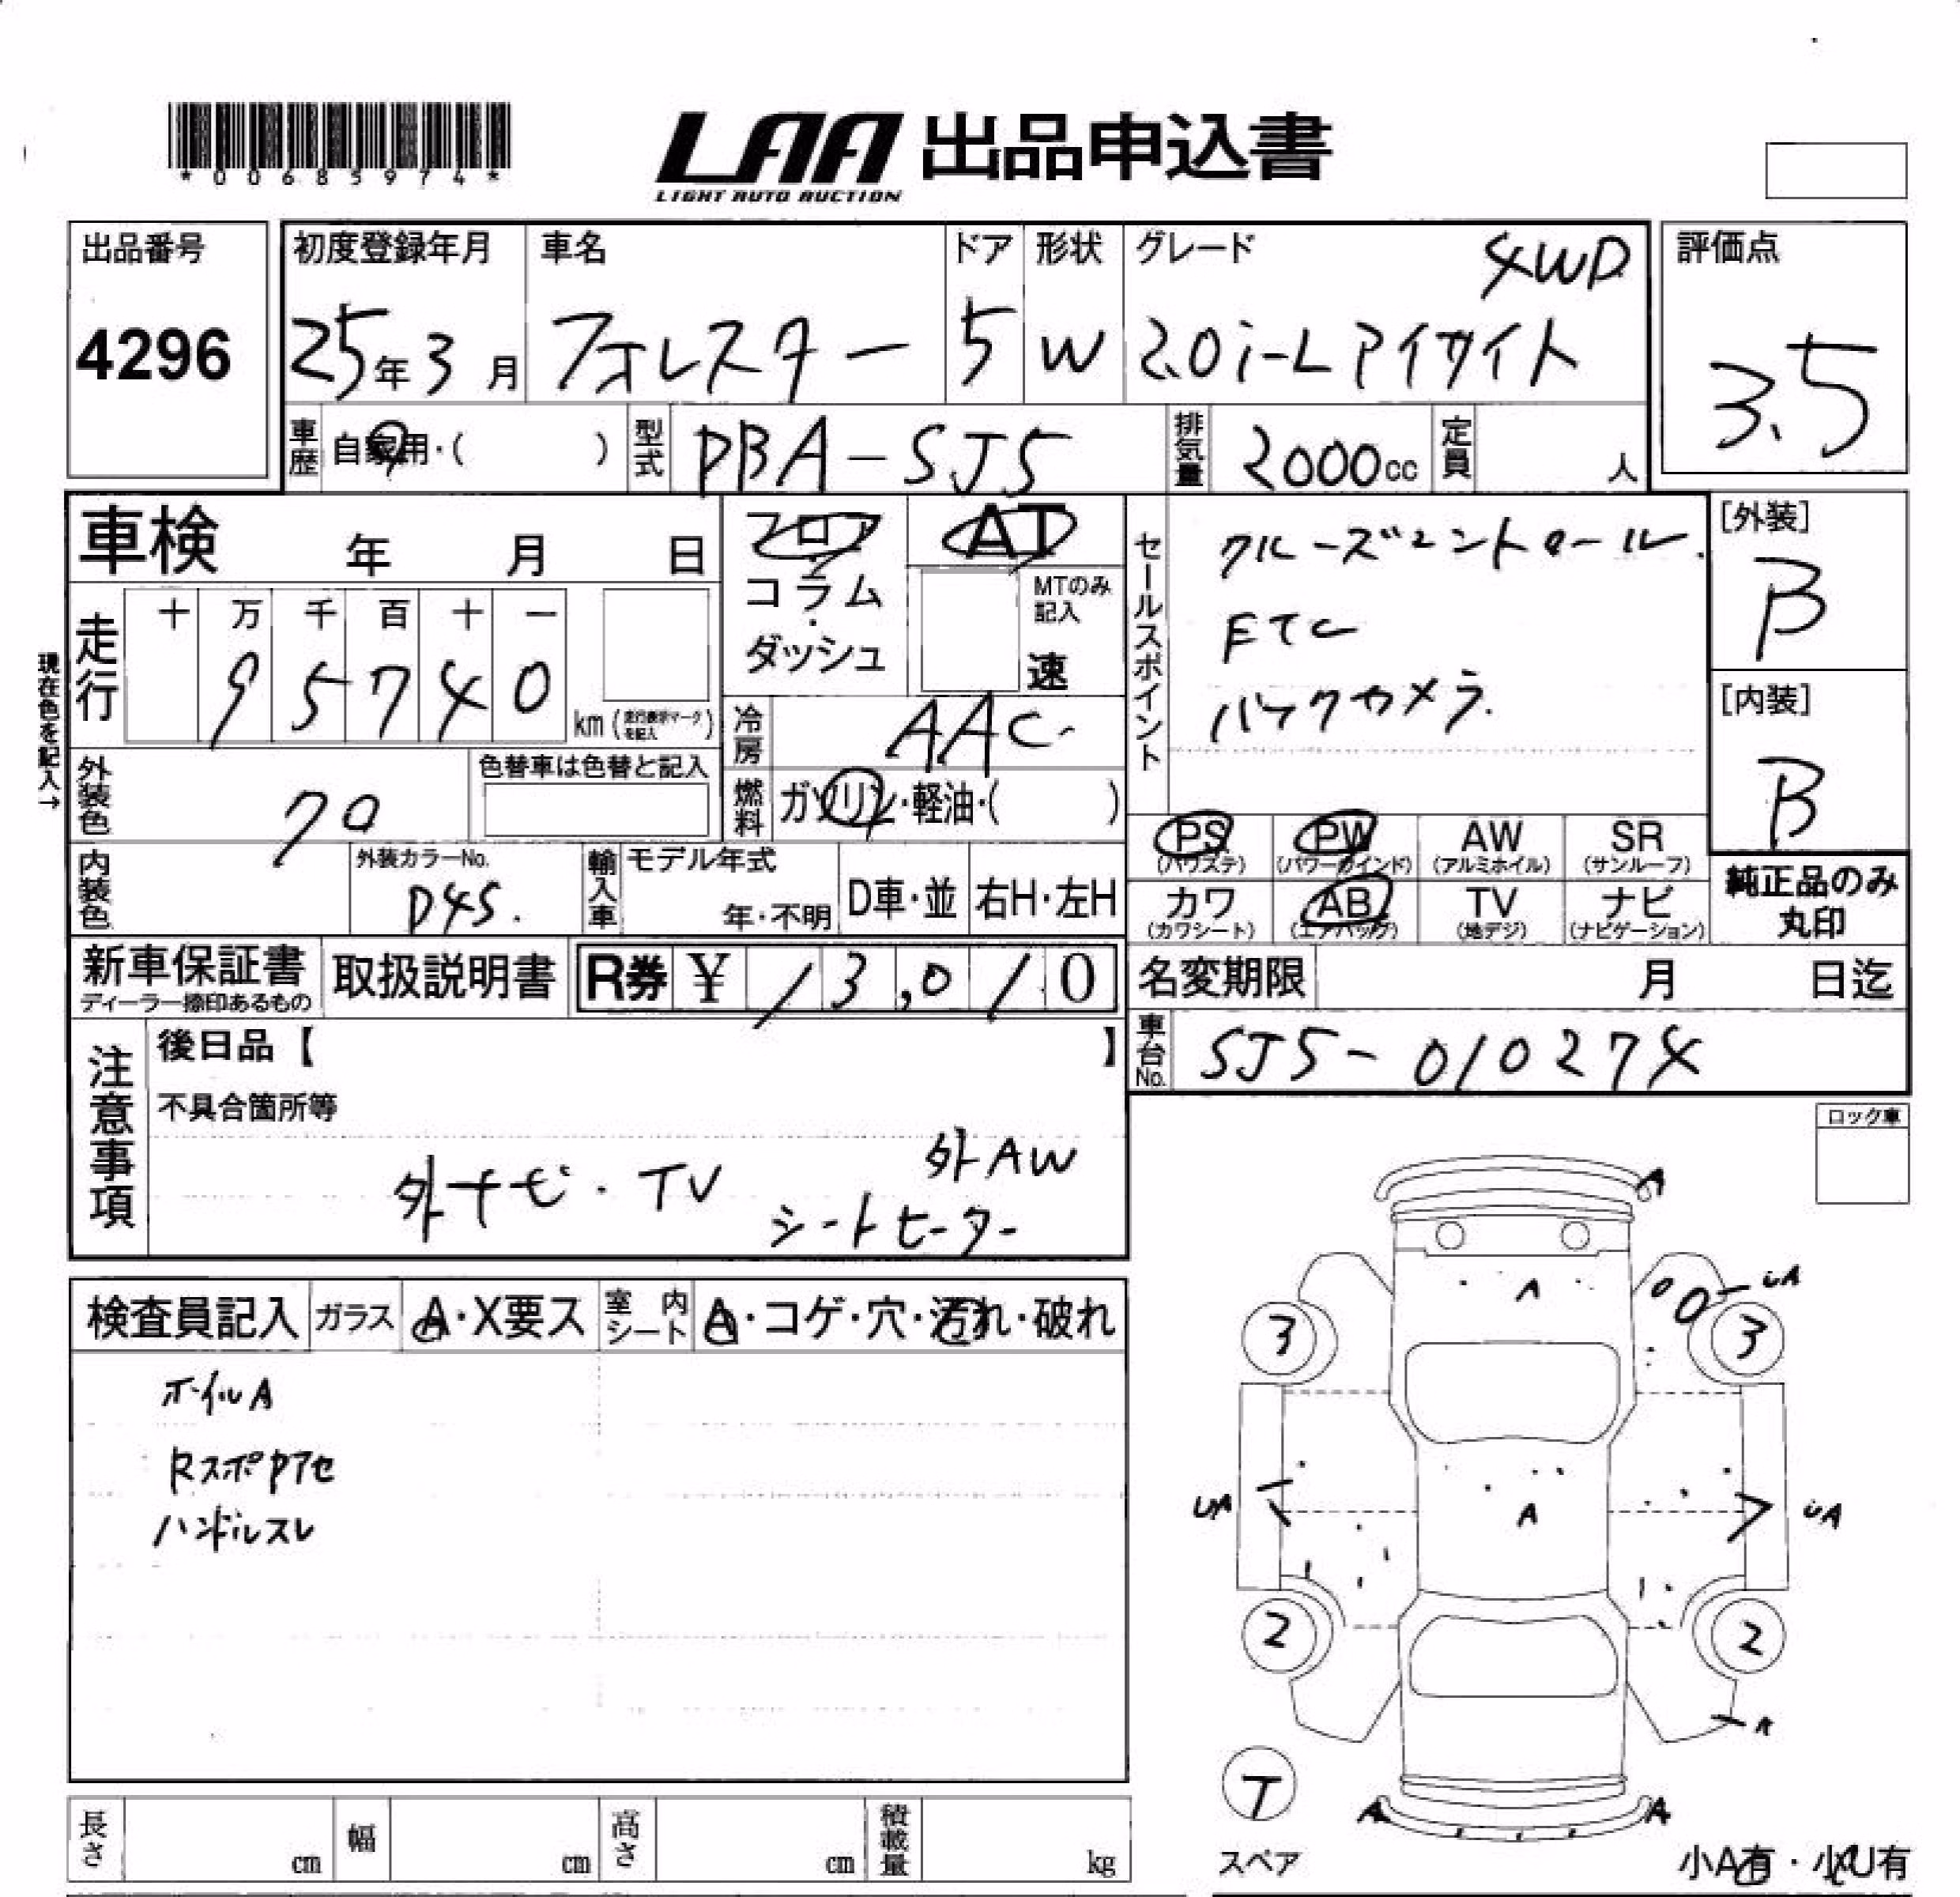 *00685974*
LAA 出品申込書
LIGHT AUTO AUCTION
出品番号
4296
初度登録年月
25年3月
車名
フォレスター
ドア
5
形状
W
グレード 4WD
2.0i-L アイサイト
評価点
3.5
車歴 自家用・( )
型式 DBA-SJ5
排気量 2000cc
定員 人
車検 年 月 日
フロア
コラム
ダッシュ
AT
MTのみ記入
速
セールスポイント
クルーズコントロール.
ETC
バックカメラ.
[外装]
B
[内装]
B
現在色を記入→
走行
十 万 千 百 十 一
9 5 7 4 0
km (走行表示マークを記入)
冷房 AAC
燃料 ガソリン・軽油・( )
外装色 クロ
色替車は色替と記入
内装色
外装カラーNo.
D4S.
輸入車 モデル年式
年・不明
D車・並 右H・左H
PS (パワステ)
PW (パワーウインド)
AW (アルミホイル)
SR (サンルーフ)
カワ (カワシート)
AB (エアバッグ)
TV (地デジ)
ナビ (ナビゲーション)
純正品のみ
丸印
新車保証書
ディーラー捺印あるもの
取扱説明書
R券 ¥ 13,010
名変期限 月 日迄
車台No. SJ5-010274
注意事項
後日品【 】
不具合箇所等
外ナビ・TV
外AW
シートヒーター
ロック車
検査員記入 ガラス A・X要ス 室内シート A・コゲ・穴・汚れ・破れ
ホイルA
Rスポアセ
ハンドルスレ
A
A
UA
3
3
UA
A
UA
2
2
A
T
スペア
A
A
小A有・小U有
長さ cm
幅 cm
高さ cm
積載量 kg